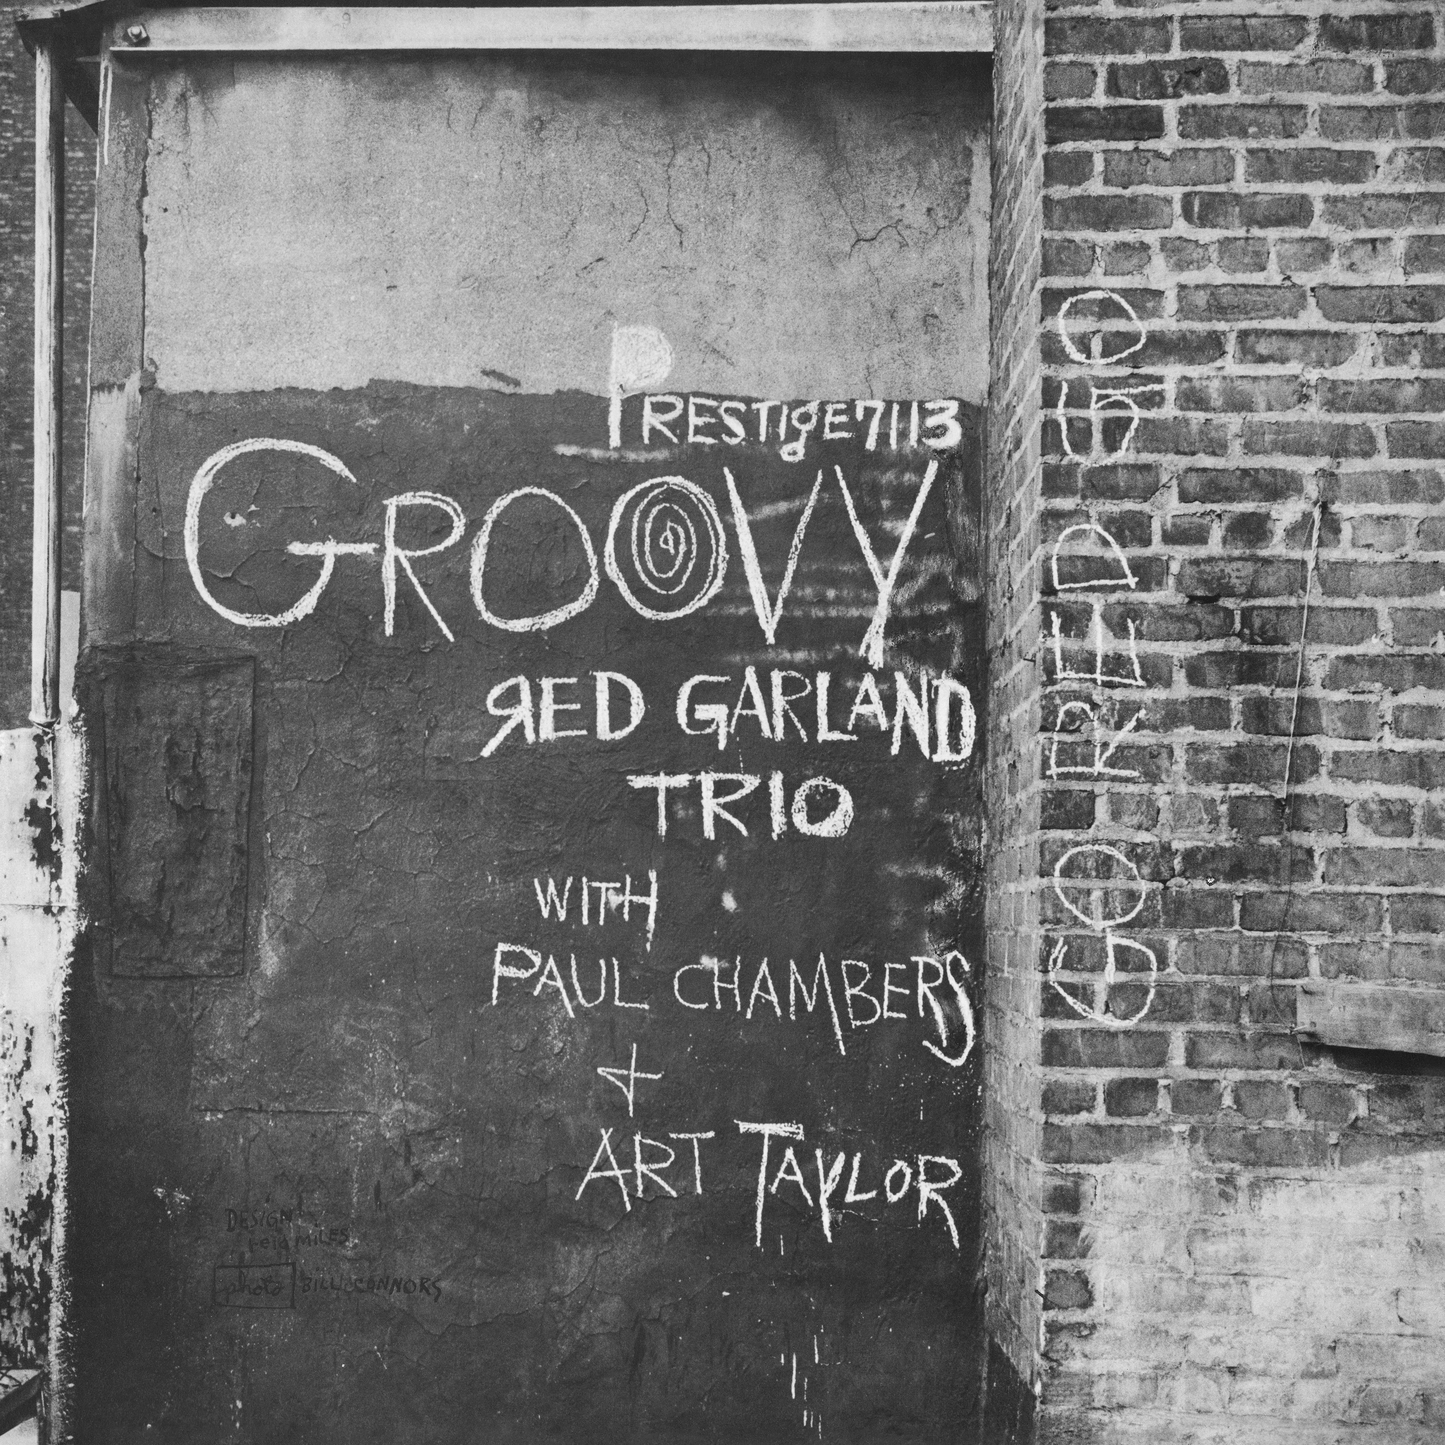 PRESTIgE7113
GROOVY
RED GARLAND
TRIO
WITH
PAUL CHAMBERS
+
ART TAYLOR
GO RED GO
DESIGN
reid MILES
photo BILL OCONNORS